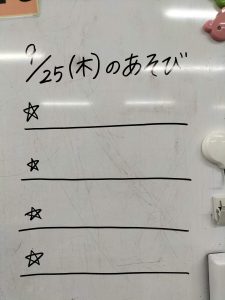 9/25(木)のあそび
☆
☆
☆
☆